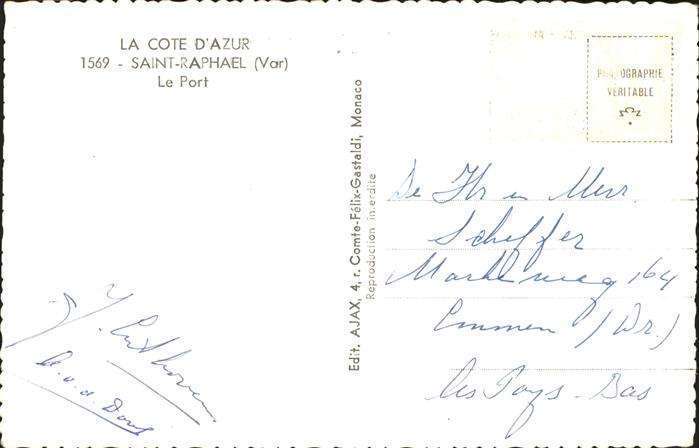 LA COTE D'AZUR
1569 - SAINT-RAPHAEL (Var)
Le Port
Edit. AJAX, 4, r. Comte-Félix-Gastaldi, Monaco
Reproduction interdite
PHOTOGRAPHIE
VÉRITABLE
De Hr en Mevr.
Scheffer
164
Emmen (Dr.)
Les Pays-Bas